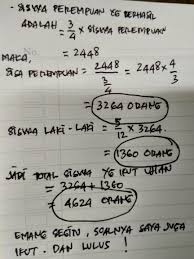 - SISWA PEREMPUAN YG BERHASIL
ADALAH = 3/4 x SISWA PEREMPUAN
MAKA, = 2448
SISA PEREMPUAN = 2448 / 3/4 = 2448 x 4/3
= 3264 ORANG
SISWA LAKI-LAKI = 5/12 x 3264
= 1360 ORANG
JADI TOTAL SISWA YG IKUT UJIAN
= 3264 + 1360
= 4624 ORANG
EMANG SEGIN, SOALNYA SAYA JUGA
IKUT. DAN LULUS !